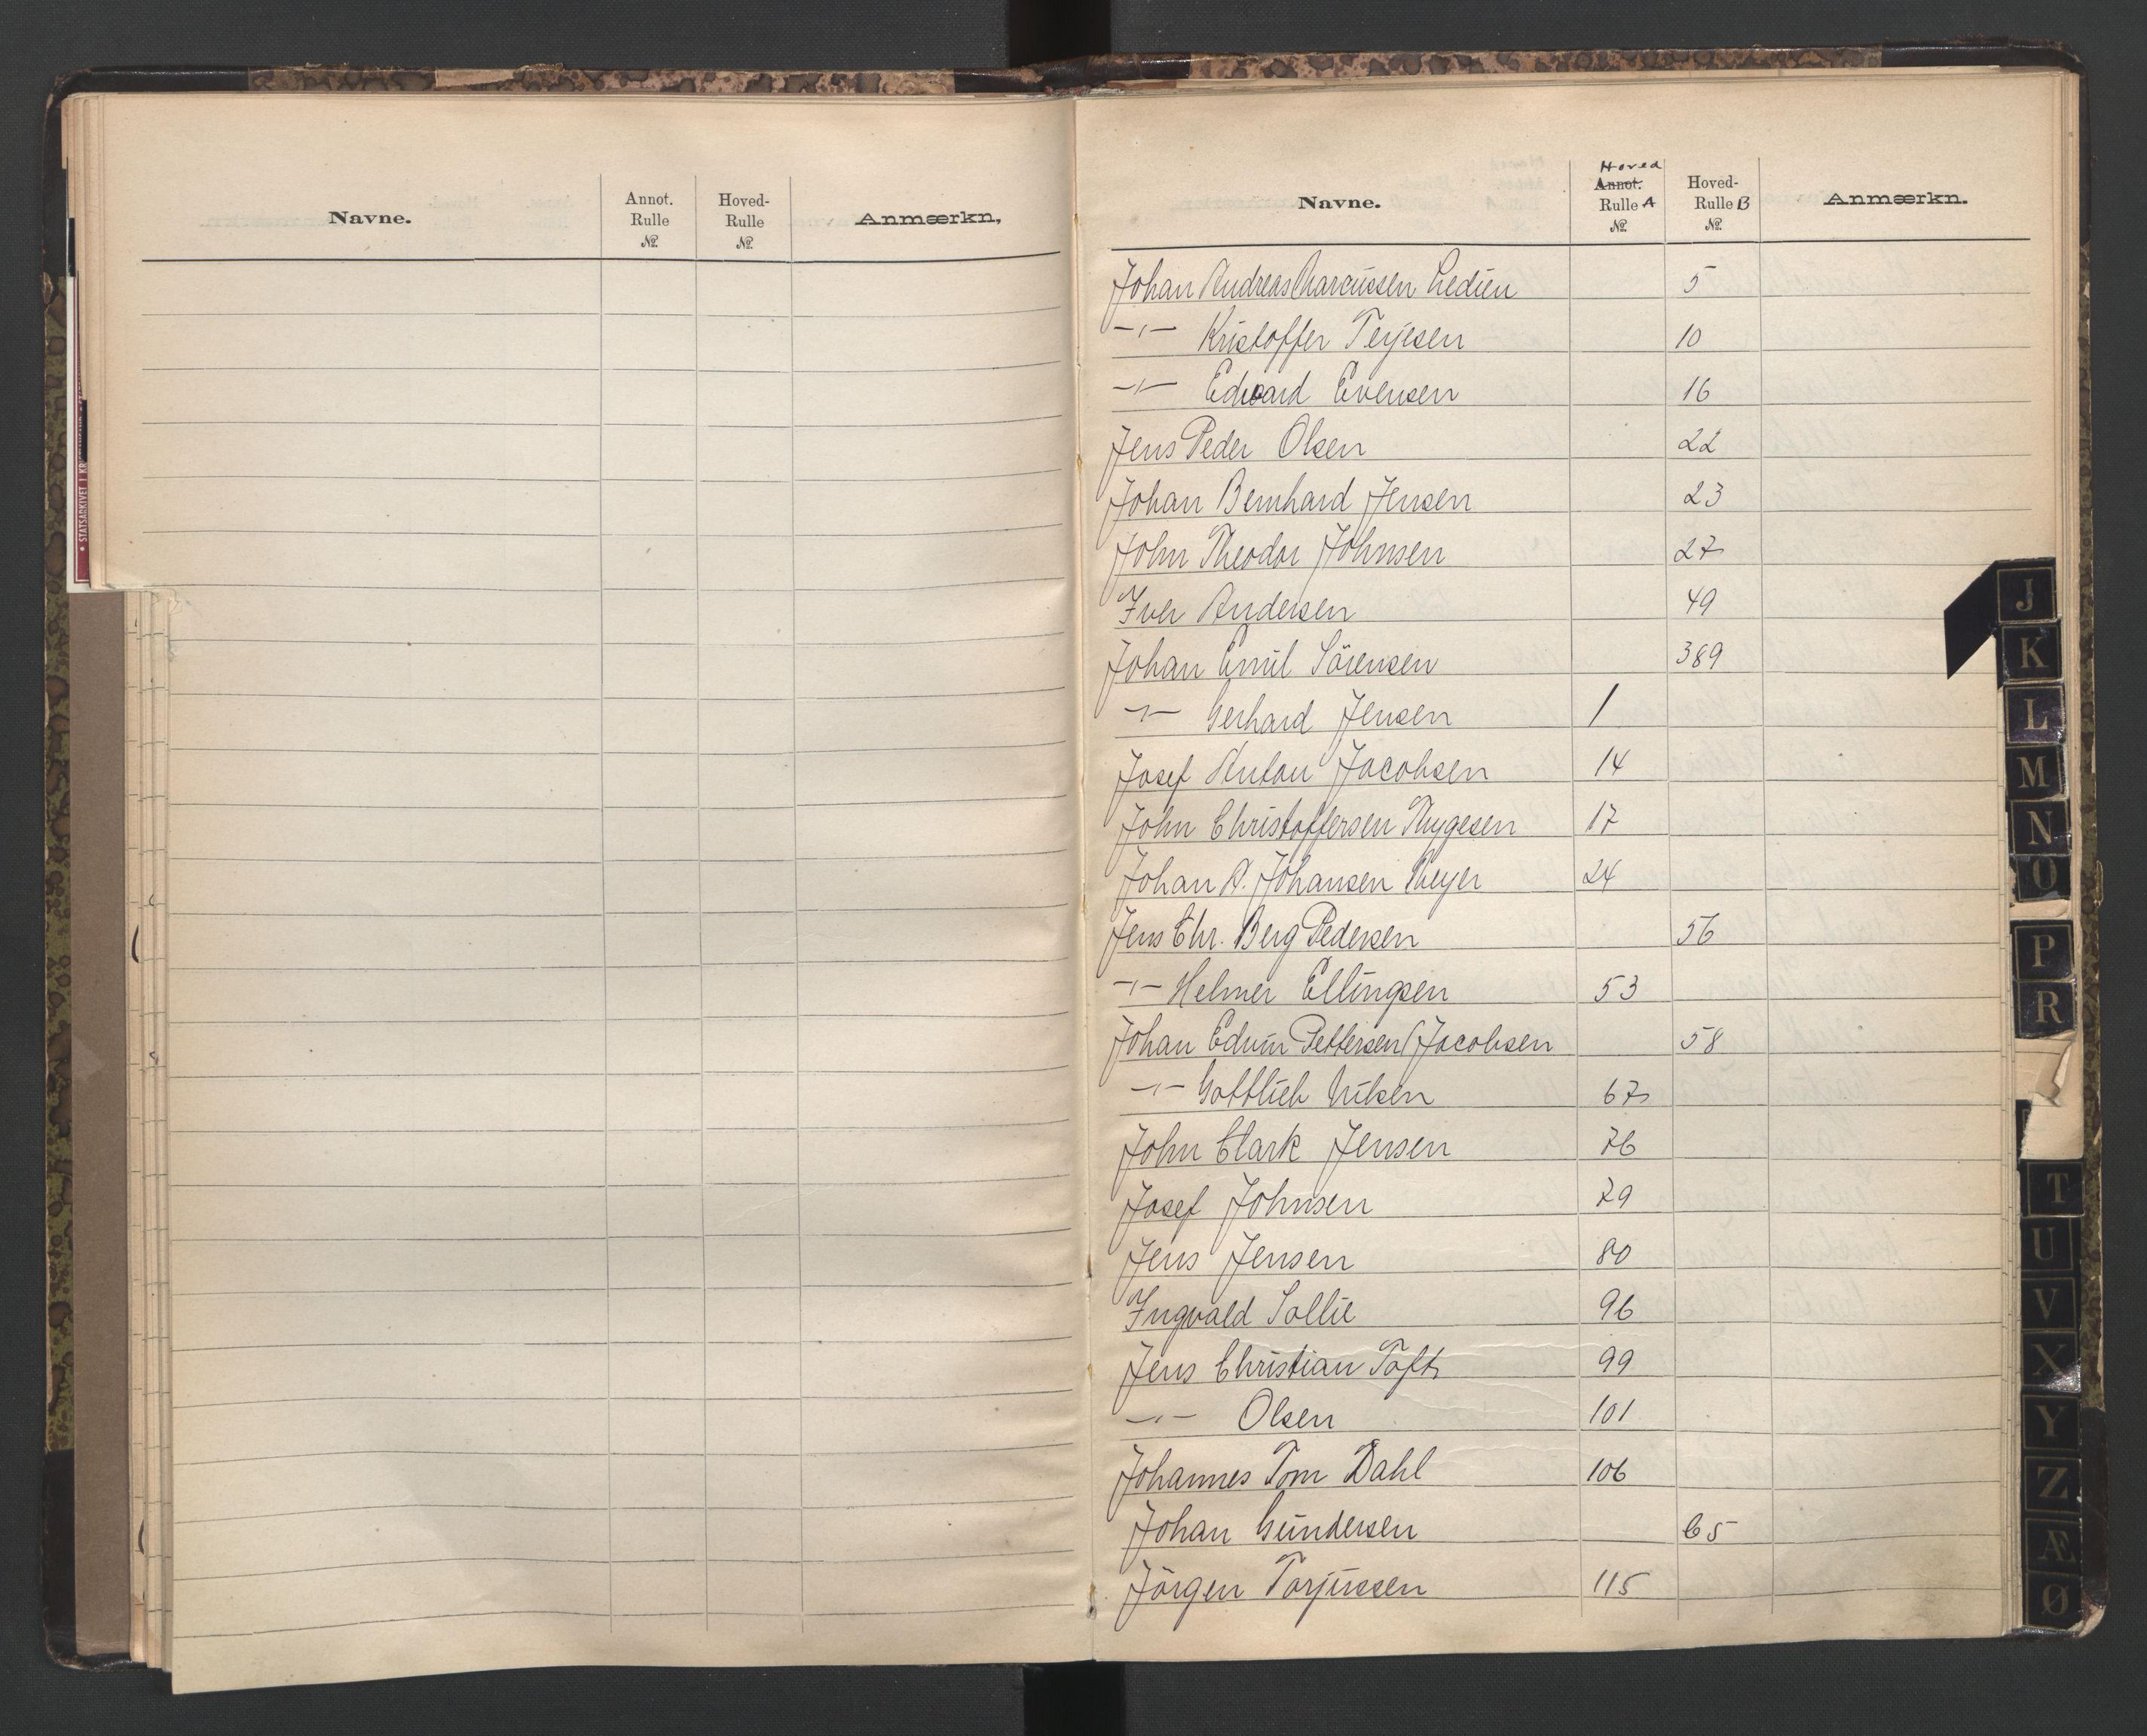 Navne.
Annot. Rulle №.
Hoved- Rulle №.
Anmærkn,
• STATSARKIVET I KR
Navne.
Hoved Annot. Rulle A №.
Hoved- Rulle B №.
Anmærkn.
Johan Andreas Marcussen Ledien 5
-"- Kristoffer Terjesen 10
-"- Edvard Evensen 16
Jens Peder Olsen 22
Johan Bernhard Jensen 23
John Theodor Johnsen 27
Iver Andersen 49
Johan Emil Sörensen 389
-"- Gerhard Jensen 1
Josef Anton Jacobsen 14
John Christoffersen Thygesen 17
Johan A. Johansen Meyer 24
Jens Chr. Berg Pedersen 56
-"- Helmer Ellingsen 53
Johan Edvin Pettersen (Jacobsen 58
-"- Gottlieb Nilsen 67
John Clark Jensen 76
Josef Johnsen 79
Jens Jensen 80
Ingvald Sollie 96
Jens Christian Toft 99
-"- Olsen 101
Johannes Tom Dahl 106
Johan Gundersen 65
Jörgen Torjussen 115
J
K
L
M
N
O
P
R
T
U
V
X
Y
Z
Æ
Ø